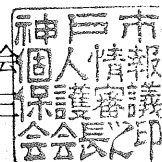 神戸市
個人情報
保護審議
会会長印
会